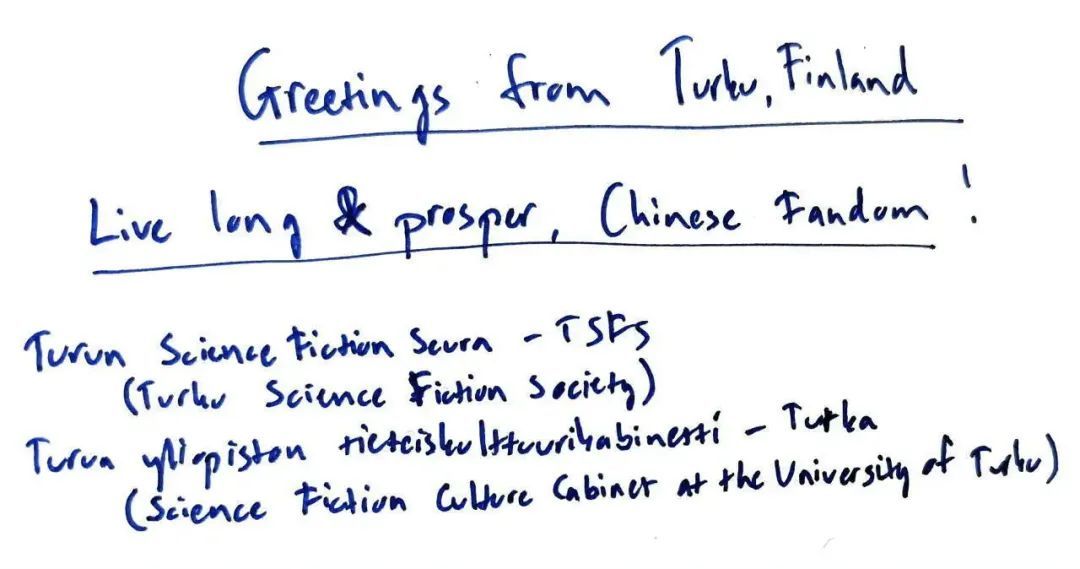 Greetings from Turku, Finland
Live long & prosper, Chinese Fandom!
Turun Science Fiction Seura - TSFS
(Turku Science Fiction Society)
Turun yliopiston tieteiskulttuurikabinetti - Tutka
(Science Fiction Culture Cabinet at the University of Turku)